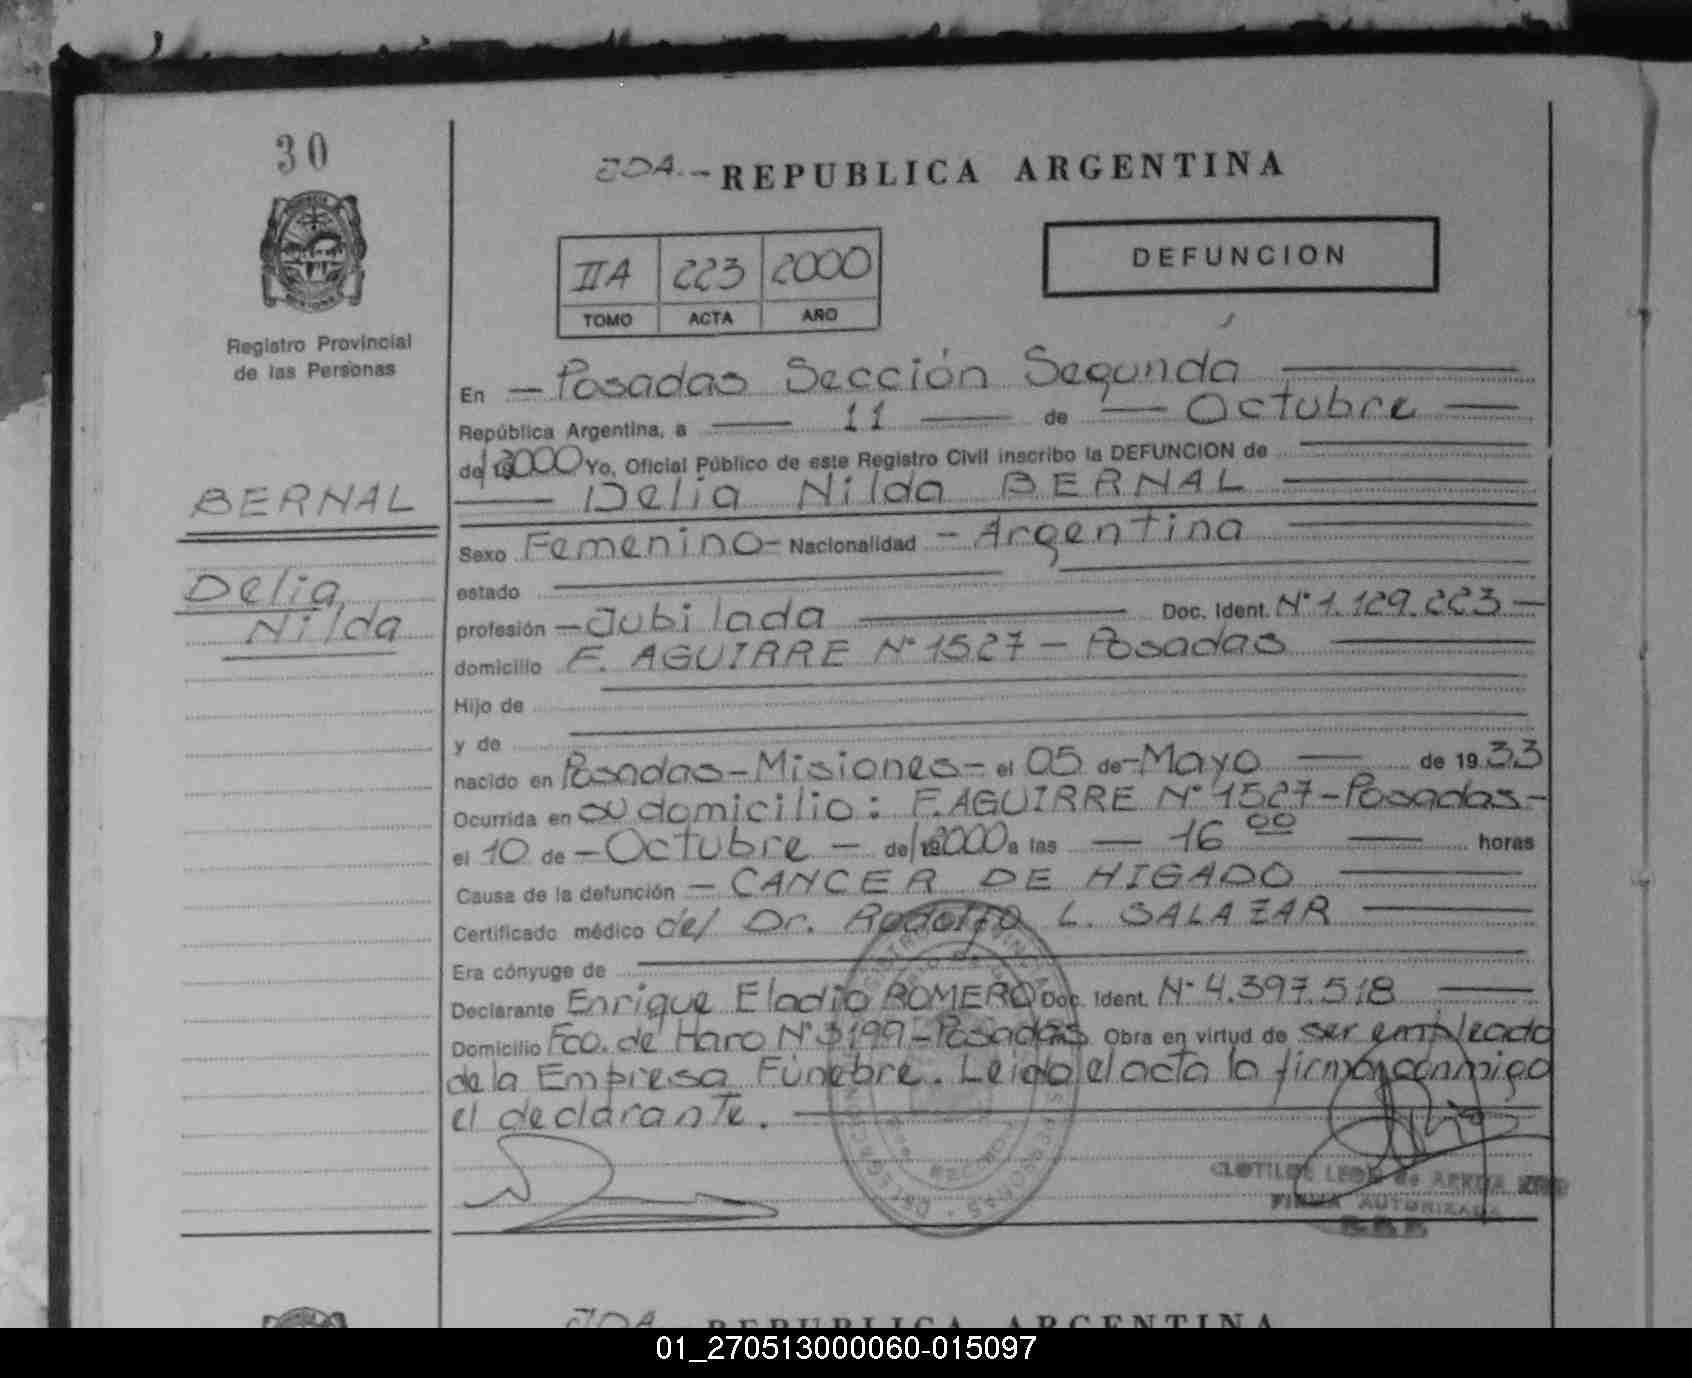 30
2DA.- REPUBLICA ARGENTINA
IIA 223 2000
TOMO ACTA AÑO
DEFUNCION
Registro Provincial
de las Personas
BERNAL
Delia
Nilda
En - Posadas Sección Segunda
República Argentina, a 11 de Octubre
de 2000 Yo, Oficial Público de este Registro Civil inscribo la DEFUNCION de
Delia Nilda BERNAL
Sexo Femenino - Nacionalidad - Argentina
estado
profesión - Jubilada Doc. Ident. N° 1.129.223 -
domicilio F. AGUIRRE N° 1527 - Posadas
Hijo de
y de
nacido en Posadas - Misiones - el 05 de - Mayo de 1933
Ocurrida en su domicilio: F. AGUIRRE N° 1527 - Posadas -
el 10 de - Octubre - de 2000 a las - 16 00 horas
Causa de la defunción - CANCER DE HIGADO
Certificado médico del Dr. Rodolfo L. SALAZAR
Era cónyuge de
Declarante Enrique Eladio ROMERO Doc. Ident. N° 4.397.518
Domicilio Fco. de Haro N° 3199 - Posadas Obra en virtud de ser empleado
de la Empresa Fúnebre. Leida el acta la firman conmigo
el declarante.
CLOTILDE LEON de
FIRMA AUTORIZADA
2DA. REPUBLICA ARGENTINA
01_270513000060-015097